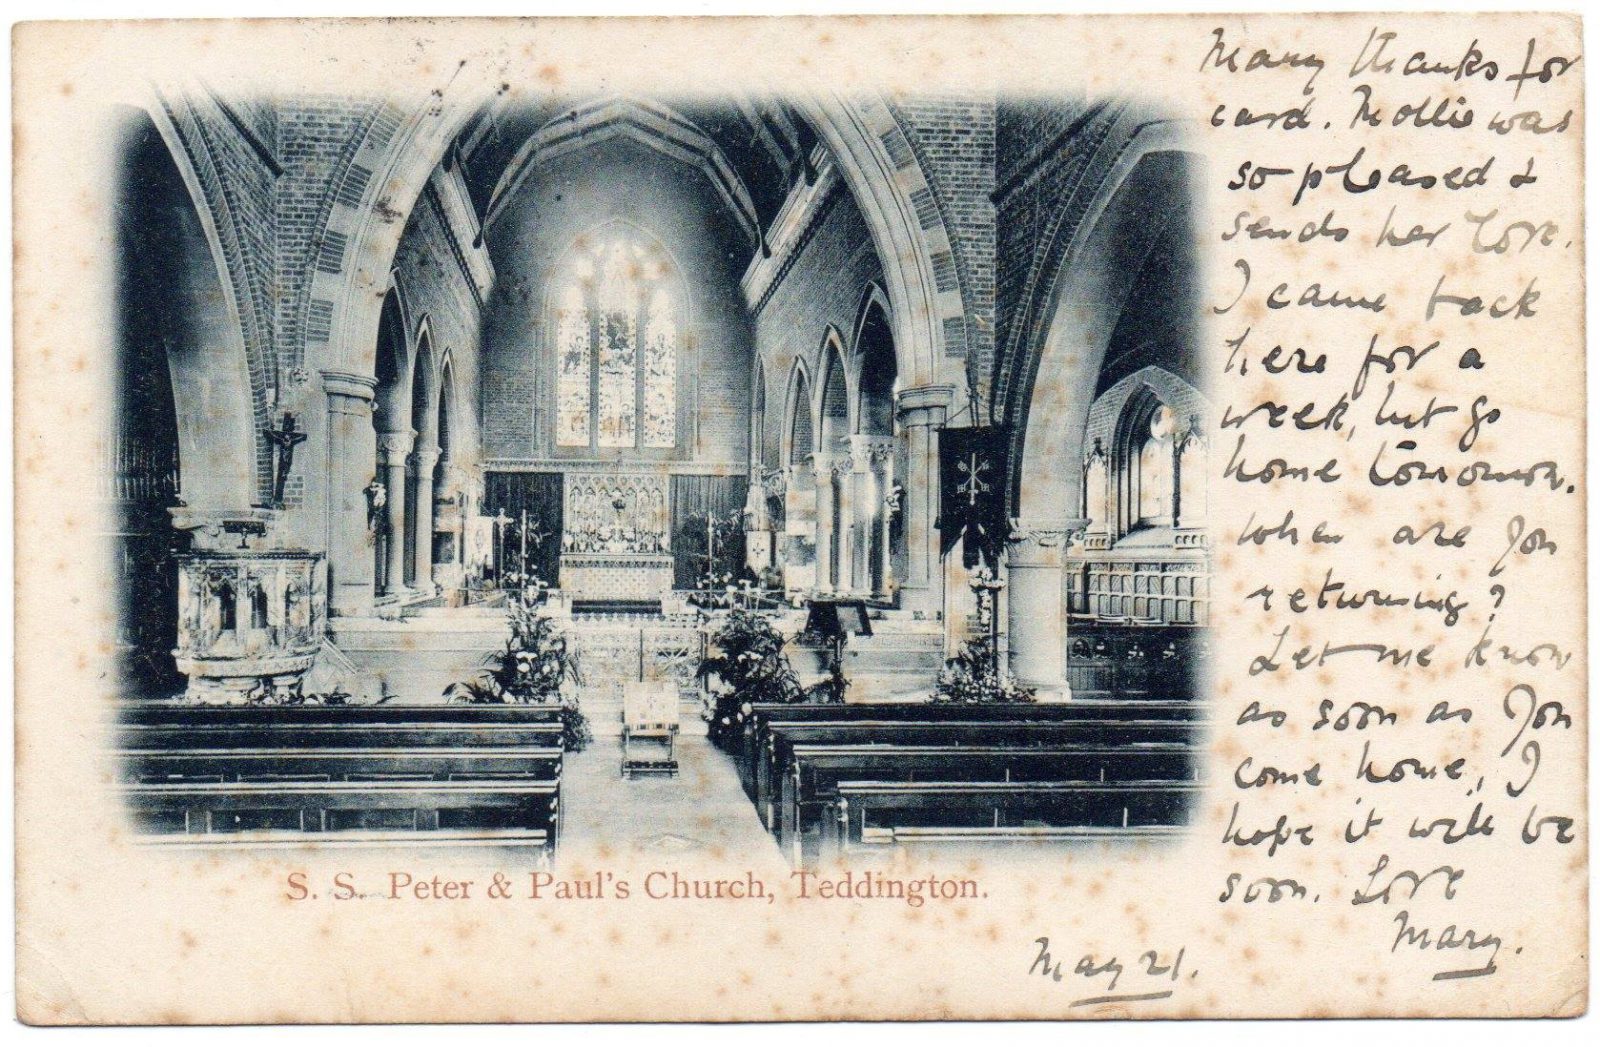 Many thanks for
card. Mollie was
so pleased &
sends her love.
I came back
here for a
week, but go
home tomorrow.
When are you
returning?
Let me know
as soon as you
come home, I
hope it will be
soon. Love
Mary.
May 21.
S. S. Peter & Paul's Church, Teddington.